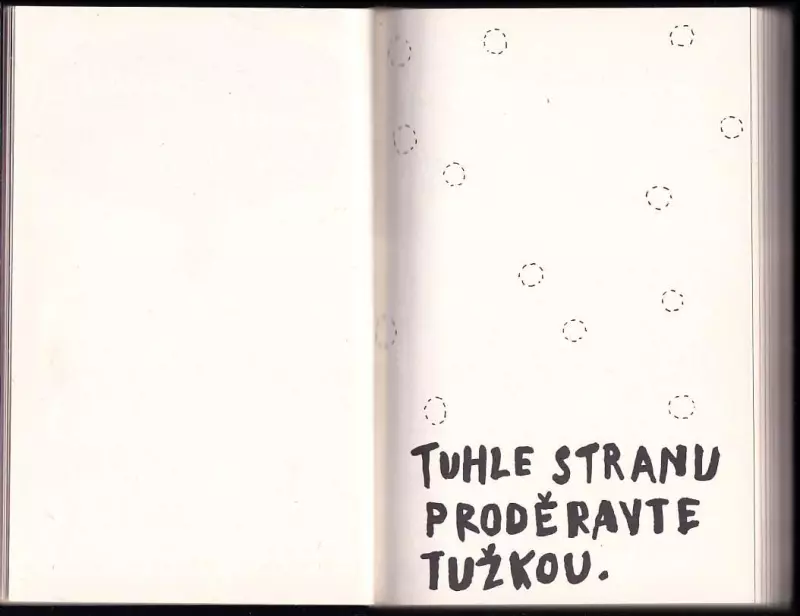 TUHLE STRANU
PRODĚRAVTE
TUŽKOU.